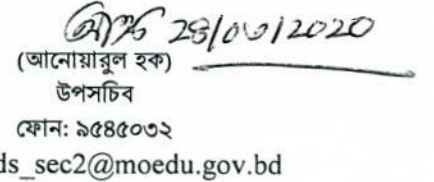 (আনোয়ারুল হক)
উপসচিব
ফোন: ৯৫৪৫০৩২
ds_sec2@moedu.gov.bd